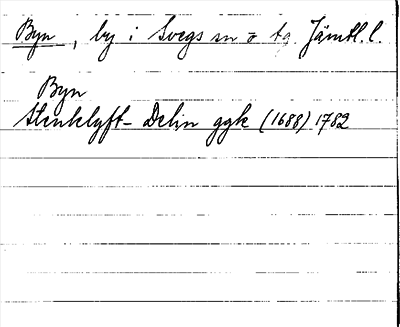 Byn, by i Svegs sn o tg Jämtl. l.
Byn
Stenklyft- Delin ggk (1688) 1782